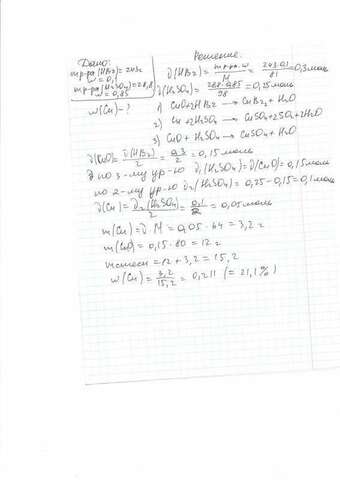 Дано:
m р-ра (HBr) = 243г
ω = 0,1
m р-ра (H2SO4) = 28,8
ω = 0,85
ω(Cu) - ?
Решение:
ν(HBr) = mр-ра·ω/M = 243·0,1/81 = 0,3 моль
ν(H2SO4) = 288·0,85/98 = 0,25 моль
1) CuO+2HBr → CuBr2 + H2O
2) Cu+2H2SO4 → CuSO4+SO2+2H2O
3) CuO + H2SO4 → CuSO4 + H2O
ν(CuO) = ν(HBr)/2 = 0,3/2 = 0,15 моль
по 3-му ур-ю ν1(H2SO4) = ν(CuO) = 0,15 моль
по 2-му ур-ю ν2(H2SO4) = 0,25 - 0,15 = 0,1 моль
ν(Cu) = ν2(H2SO4)/2 = 0,1/2 = 0,05 моль
m(Cu) = ν·M = 0,05·64 = 3,2 г
m(CuO) = 0,15·80 = 12 г
mсмеси = 12 + 3,2 = 15,2
ω(Cu) = 3,2/15,2 = 0,211 (= 21,1%)